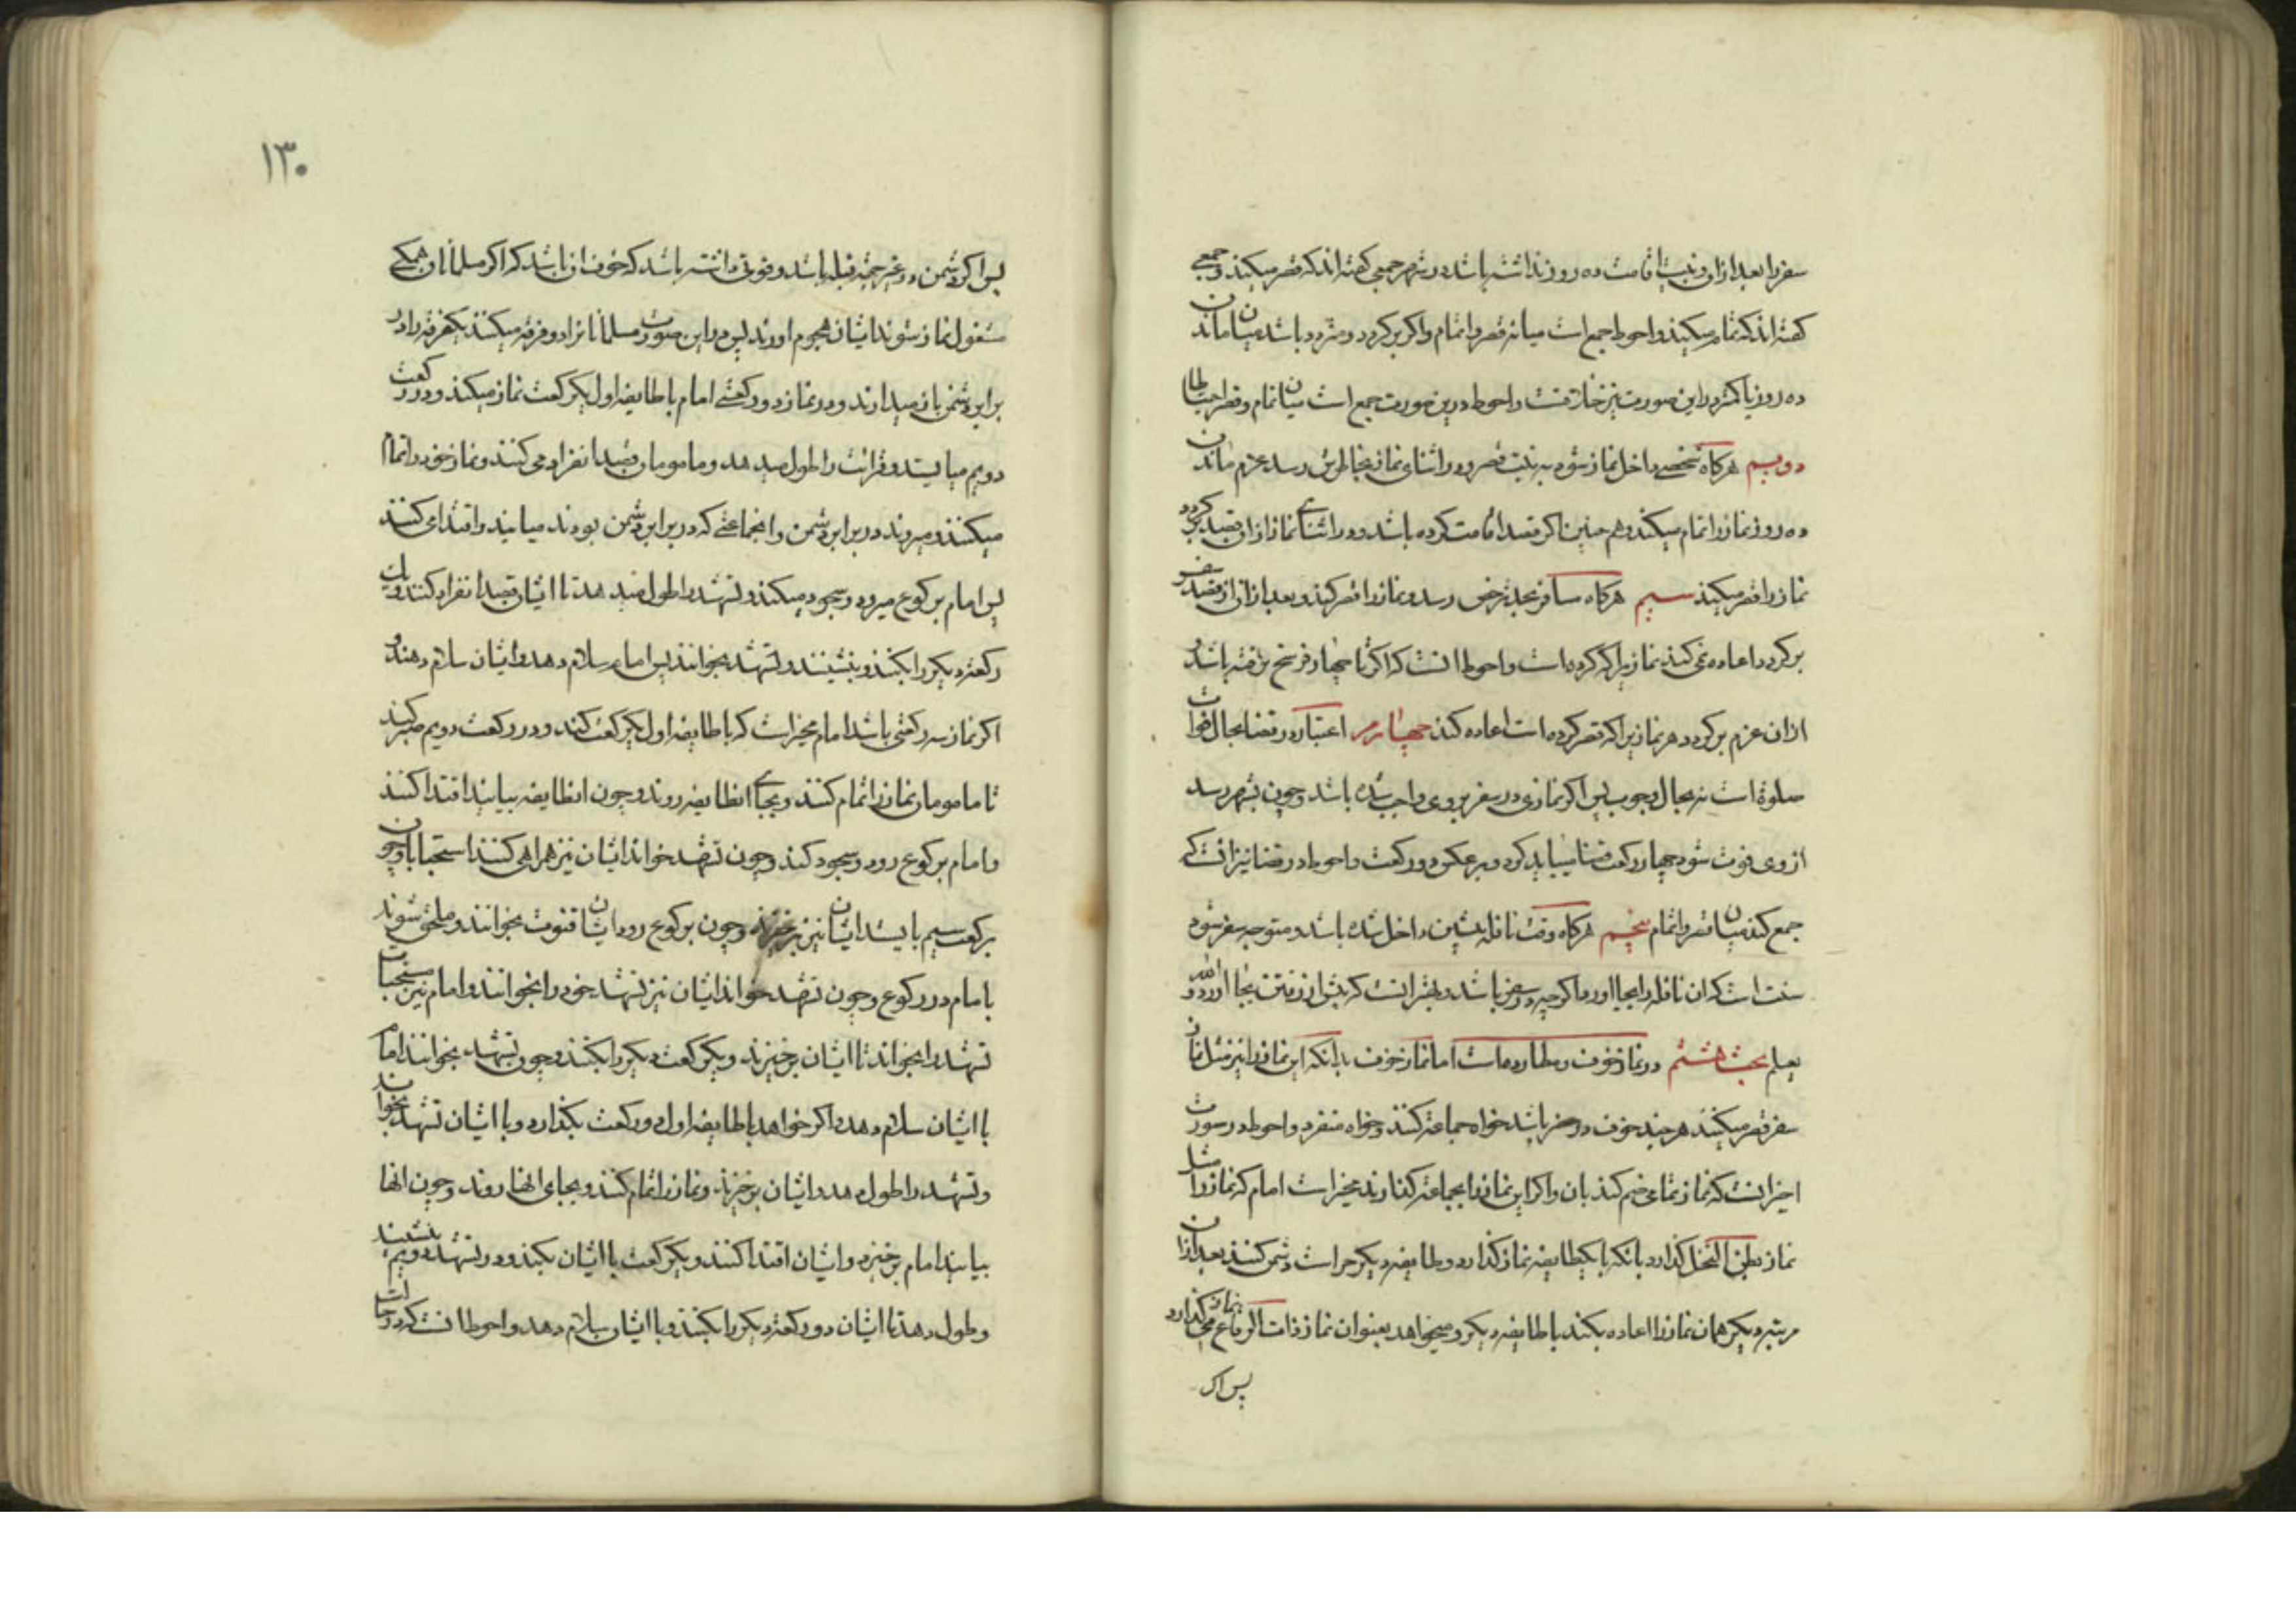 سفر را بعد از ان و نیت اقامت ده روز نداشته باشد در شهر جمعی گفته اند که قصر میکند و جمعی
گفته اند که تمام میکند و احوط جمع است میانه قصر و اتمام و اگر برگردد و متردد باشد میان ماندن
ده روز یا کمتر در این صورت نیز خلافست و احوط درین صورت جمع است میان تمام و قصر احتیاطا
دویم هرگاه شخصی داخل نماز شود به نیت قصر و در اثنای نماز بخاطرش رسد عزم ماندن
ده روز نماز را تمام میکند و هم چنین اگر قصد اقامت کرده باشد و در اثنای نماز از ان قصد برگردد
نماز را قصر میکند سیم هرگاه مسافر بحد ترخص رسد و نماز را قصر کند و بعد از ان از قصد سفر
برگردد اعاده نمی کند نمازیرا که کرده است و احوط انست که اگر تا چهار فرسخ نرفته باشد و
از ان عزم برگردد هر نمازیرا که قصر کرده است اعاده کند چهارم اعتبار در قضا بحال فوات
صلوة است نه بحال وجوب پس اگر نمازی در سفر بر وی واجب شده باشد و چون بشهر رسد
از وی فوت شود چهار رکعت قضا میباید کرد و برعکس دو رکعت و احوط در قضا نیز انست که
جمع کند میان قصر و اتمام پنجم هرگاه وقت نافله پیشین داخل شده باشد و متوجه سفر شود
سنت است که ان نافله را بجا اورد اگر چه در سفر باشد و بهتر انست که پیش از رفتن بجا اورد و الله
یعلم بحث هشتم در نماز خوف و مطارده است اما نماز خوف بدانکه این نماز را نیز مثل نماز
سفر قصر میکنند هر چند خوف در حضر باشد خواه جماعة کنند و خواه منفرد و احوط در صورت
اخیر انست که نماز تمامی ضم کند بان و اگر این نماز را بجماعة گذارند مخیر است امام که نماز را مثل
نماز بطن النخل گذارد بانکه با یکطایفه نماز گذارد و طایفه دیگر حراست دشمن کنند بعد از ان
مرتبه دیگر همان نماز را اعاده بکند با طایفه دیگر و میخواهد بعنوان نماز ذات الرقاع نماز میگذارد
پس اگر
۱۳۰
پس اگر دشمن در غیر جهة قبله باشد و قوتی داشته باشد که خوف ان باشد که اگر مسلمانان همگی
مشغول نماز شوند ایشان هجوم اورند پس در این صورت مسلمانانرا دو فرقه میکنند یکفرقه را در
برابر دشمن باز میدارند و در نماز دو رکعتی امام با طایفه اول یکرکعت نماز میکند و در رکعت
دویم می ایستد و قرائت را طول میدهد و مامومان قصد انفراد می کنند و نماز خود را تمام
میکنند و میروند در برابر دشمن و انجماعتی که در برابر دشمن بودند میایند و اقتدا می کنند
پس امام برکوع میرود و سجود میکند و تشهد را طول میدهد تا ایشان قصد انفراد کنند و یک
رکعة دیگر را بکنند و بنشینند و تشهد بخوانند پس امام سلام دهد و ایشان سلام دهند و
اگر نماز سه رکعتی باشد امام مخیر است که با طایفه اول یکرکعت کند و در رکعت دویم صبر کند
تا مامومان نماز را تمام کنند و بجای انطایفه روند و چون انطایفه بیایند اقتدا کنند
و امام برکوع رود و سجود کند و چون تشهد خواند ایشان نیز همراهی کنند استحبابا و چون
برکعت سیم بایستد ایشان نیز برخیزند و چون برکوع رود ایشان قنوت بخوانند و ملحق شوند
با امام در رکوع و چون تشهد خواند ایشان نیز تشهد خود را بخوانند و امام نیز مستحبات
تشهد را بخواند تا ایشان برخیزند و یکرکعت دیگر را بکنند و چون تشهد بخوانند امام
با ایشان سلام دهد و اگر خواهد با طایفه اول دو رکعت بگذارد و با ایشان تشهد بخواند
و تشهد را طول دهد و ایشان برخیزند و نماز را تمام کنند و بجای انها روند و چون انها
بیایند امام برخیزد و ایشان اقتدا کنند و یکرکعت با ایشان بکند و در تشهد دویم بنشیند
و طول دهد تا ایشان دو رکعة دیگر را بکنند و با ایشان سلام دهد و احوط انست که در حالت